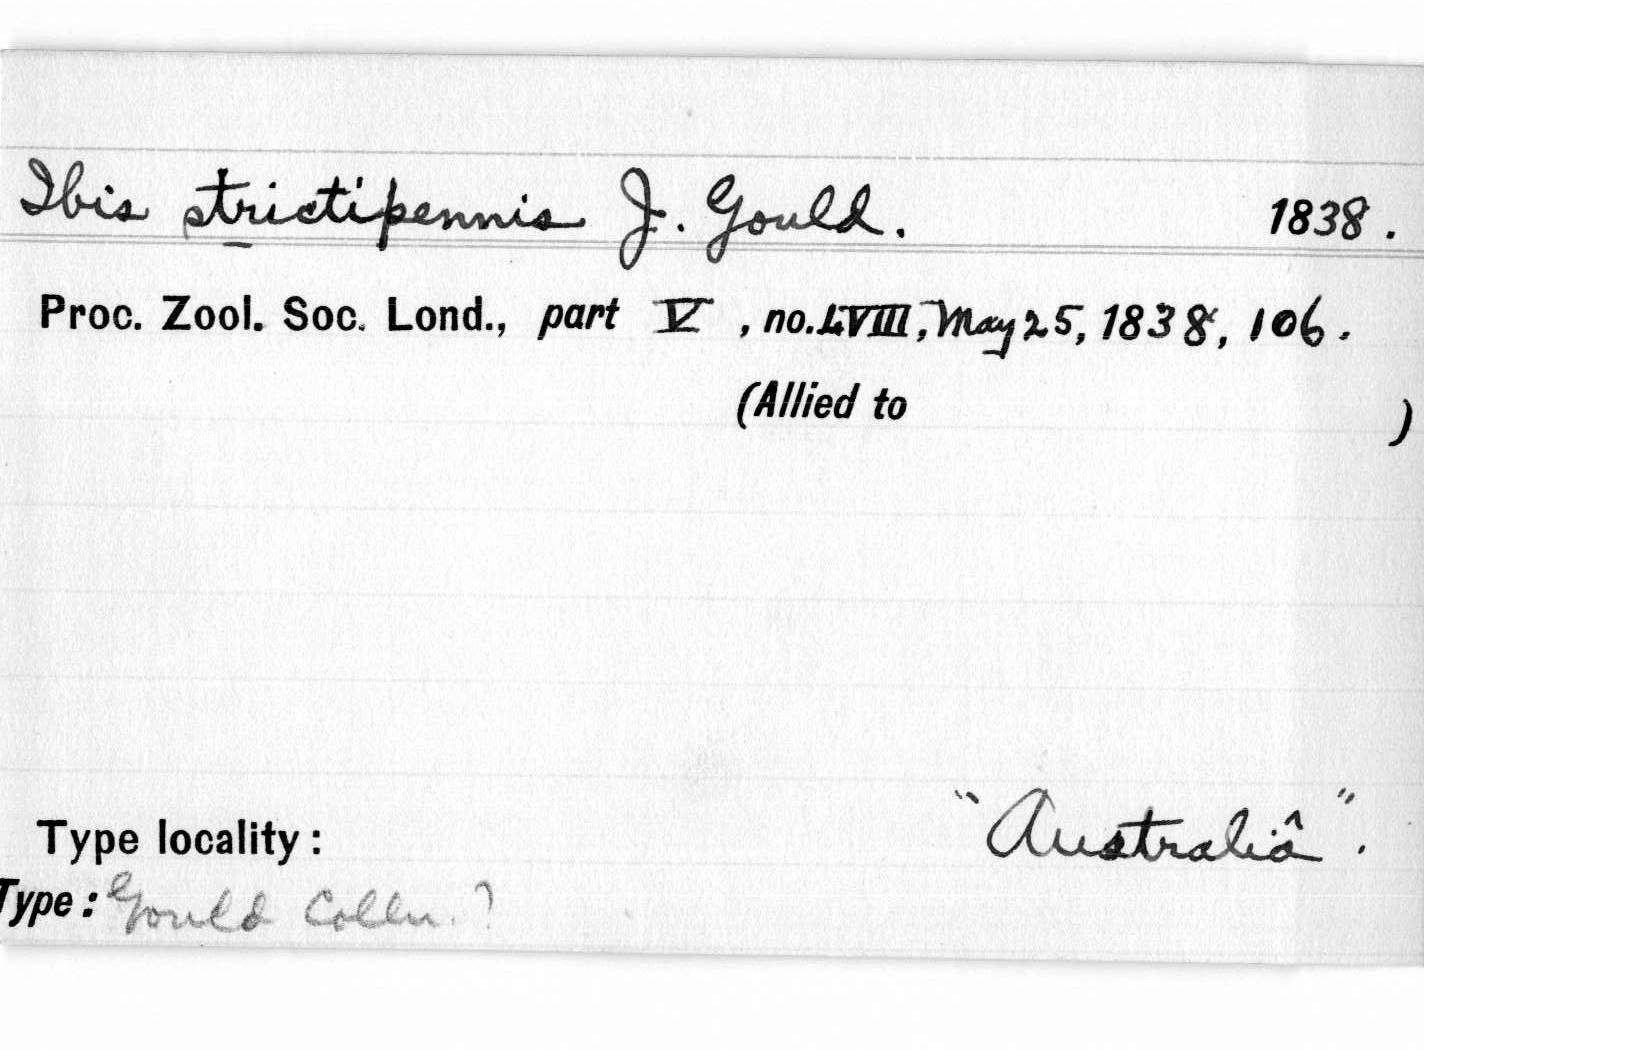 Ibis strictipennis J. Gould. 1838.
Proc. Zool. Soc. Lond., part V, no. LVIII, May 25, 1838, 106.
(Allied to )
Type locality: "Australiâ".
Type: Gould Colln. ?